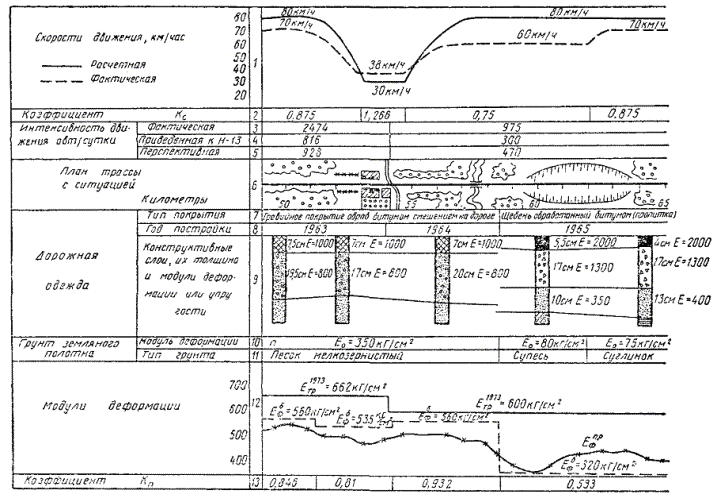 Скорости движения, км/час
Расчетная
Фактическая
80
70
60
50
40
30
20
1
80км/ч
70км/ч
38км/ч
30км/ч
80км/ч
60км/ч
70км/ч
Коэффициент Кс 2 0,875 1,266 0,75 0,875
Интенсивность движения авт/сутки
Фактическая 3 2474 975
Приведенная к Н-13 4 816 300
Перспективная 5 928 470
План трассы с ситуацией
Километры
6
50 55 60 65
Дорожная одежда
Тип покрытия 7 Гравийное покрытие обраб битумом смешением на дороге Щебень обработанный битумом (пропитка)
Год постройки 8 1963 1964 1965
Конструктивные слои, их толщина и модули деформации или упругости
9
7,5см Е=1000 7см Е=1000 7см Е=1000 5,5см Е=2000 4см Е=2000
19,5см Е=800 17см Е=800 20см Е=800 17см Е=1300 17см Е=1300
10см Е=350 13см Е=400
Грунт земляного полотна
Модуль деформации 10 п Е₀=350кг/см² Е₀=80кг/см² Е₀=75кг/см²
Тип грунта 11 Песок мелкозернистый Супесь Суглинок
Модули деформации
12
700
600
500
400
Етр¹⁹⁷³=662кг/см²
Етр¹⁹⁷³=600кг/см²
Еф⁶=560кг/см²
Еф⁶=535
Еф⁶=560кг/см²
Еф пр
Еф⁶=320кг/см²
Коэффициент Кп 13 0,846 0,81 0,932 0,533